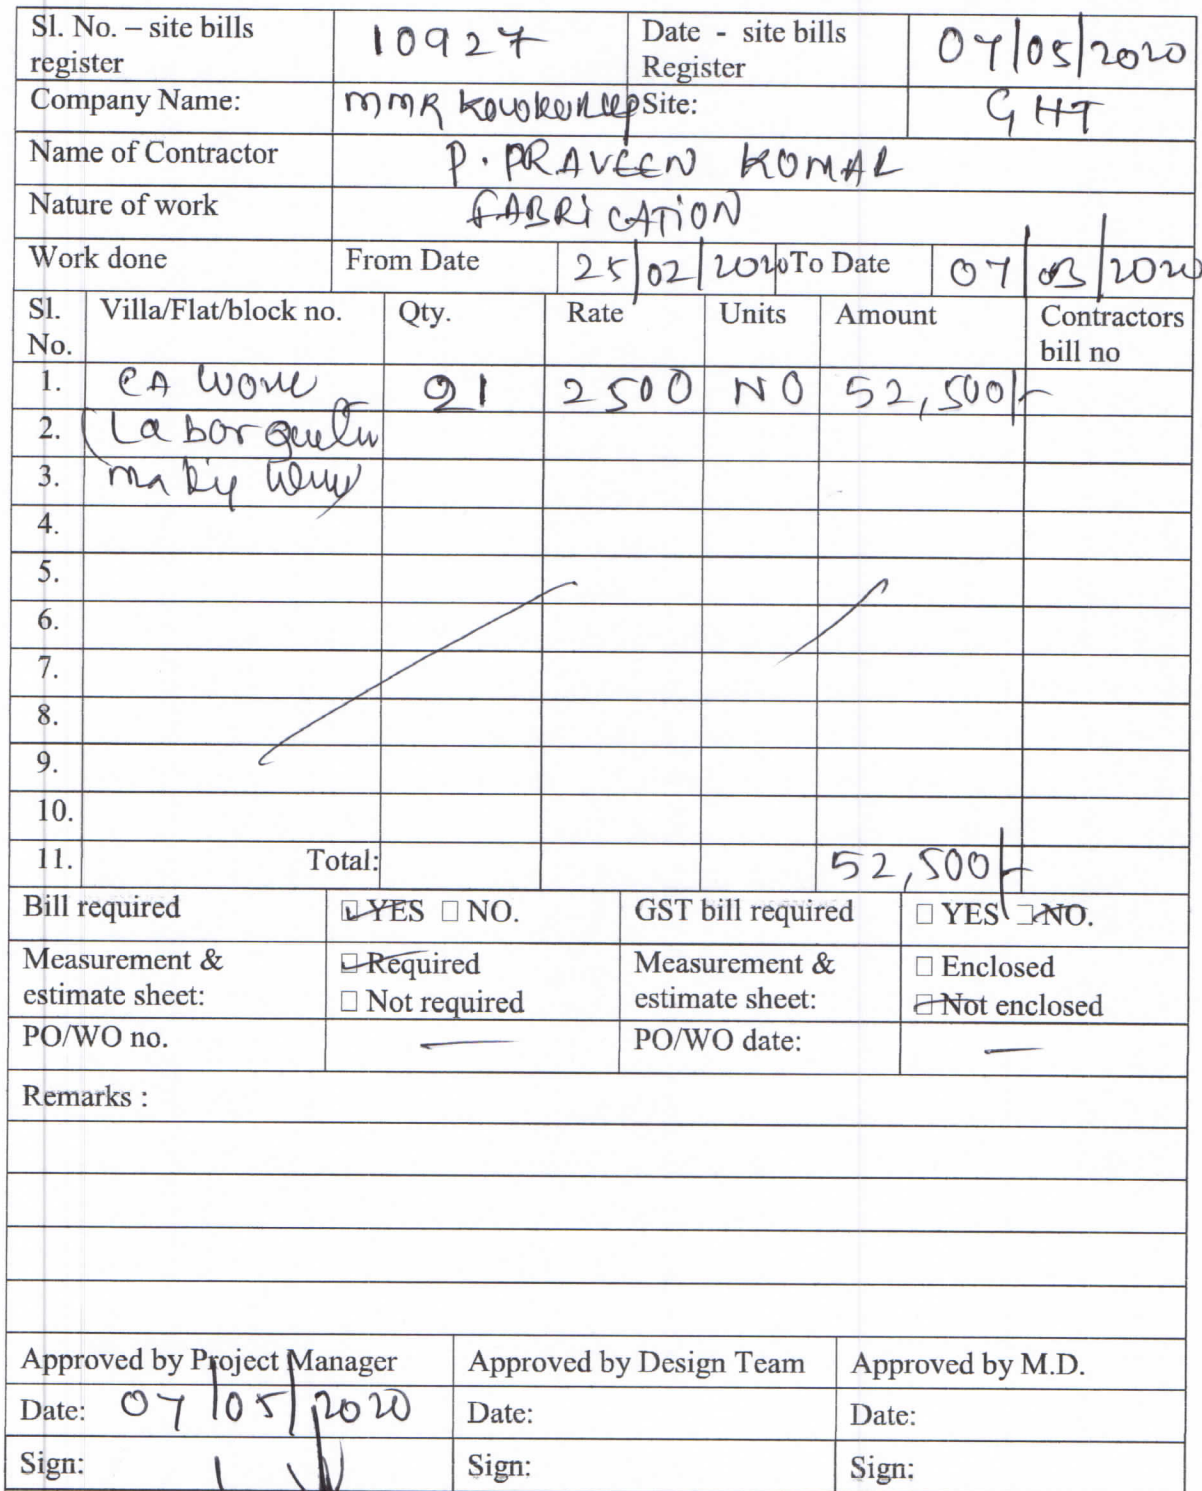 Sl. No. – site bills register 10927 Date - site bills Register 07/05/2020
Company Name: MMR Site: GHT
Name of Contractor P. PRAVEEN KOMAR
Nature of work FABRICATION
Work done From Date 25/02/2020 To Date 07/03/2020
Sl. No. Villa/Flat/block no. Qty. Rate Units Amount Contractors bill no
1. CA work 21 2500 NO 52,500/-
2. (Labor
3. 
4.
5.
6.
7.
8.
9.
10.
11. Total: 52,500/-
Bill required ☑ YES ☐ NO. GST bill required ☐ YES ☑ NO.
Measurement & estimate sheet: ☑ Required ☐ Not required Measurement & estimate sheet: ☐ Enclosed ☑ Not enclosed
PO/WO no. — PO/WO date: —
Remarks :
Approved by Project Manager Approved by Design Team Approved by M.D.
Date: 07/05/2020 Date: Date:
Sign: Sign: Sign: